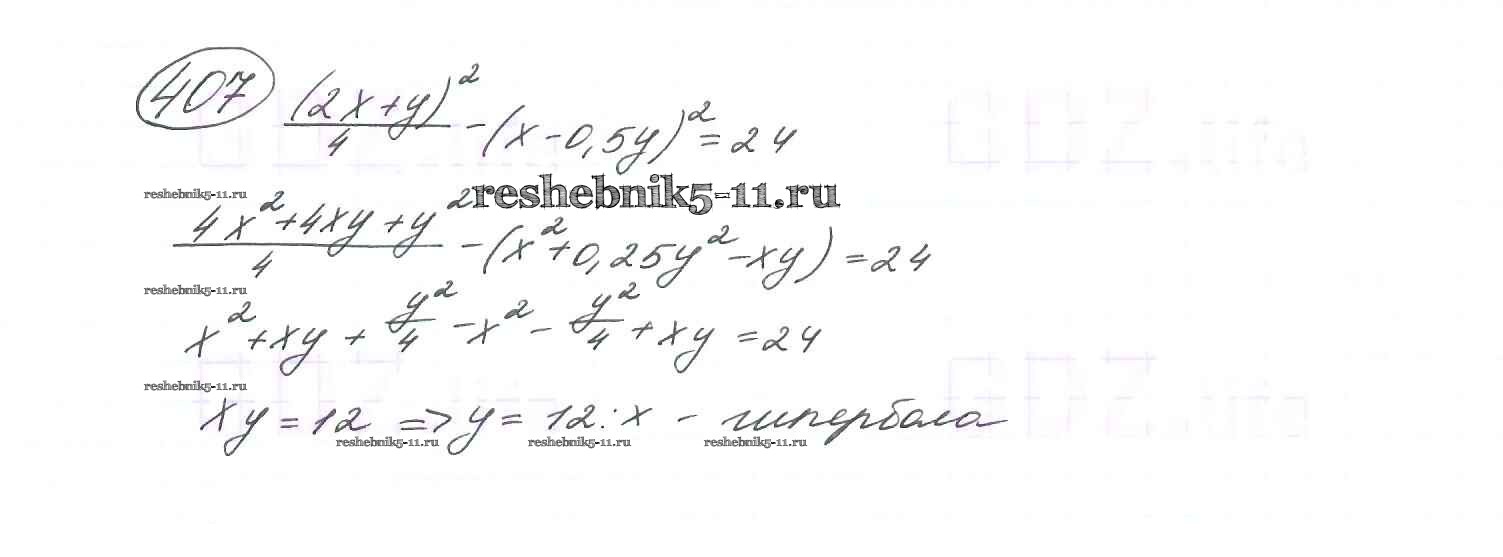 407 (2x+y)²/4 - (x-0,5y)² = 24
reshebnik5-11.ru reshebnik5-11.ru
(4x²+4xy+y²)/4 - (x²+0,25y²-xy) = 24
reshebnik5-11.ru
x²+xy+y²/4-x²-y²/4+xy=24
reshebnik5-11.ru
xy=12 => y=12:x - гипербола
reshebnik5-11.ru reshebnik5-11.ru reshebnik5-11.ru